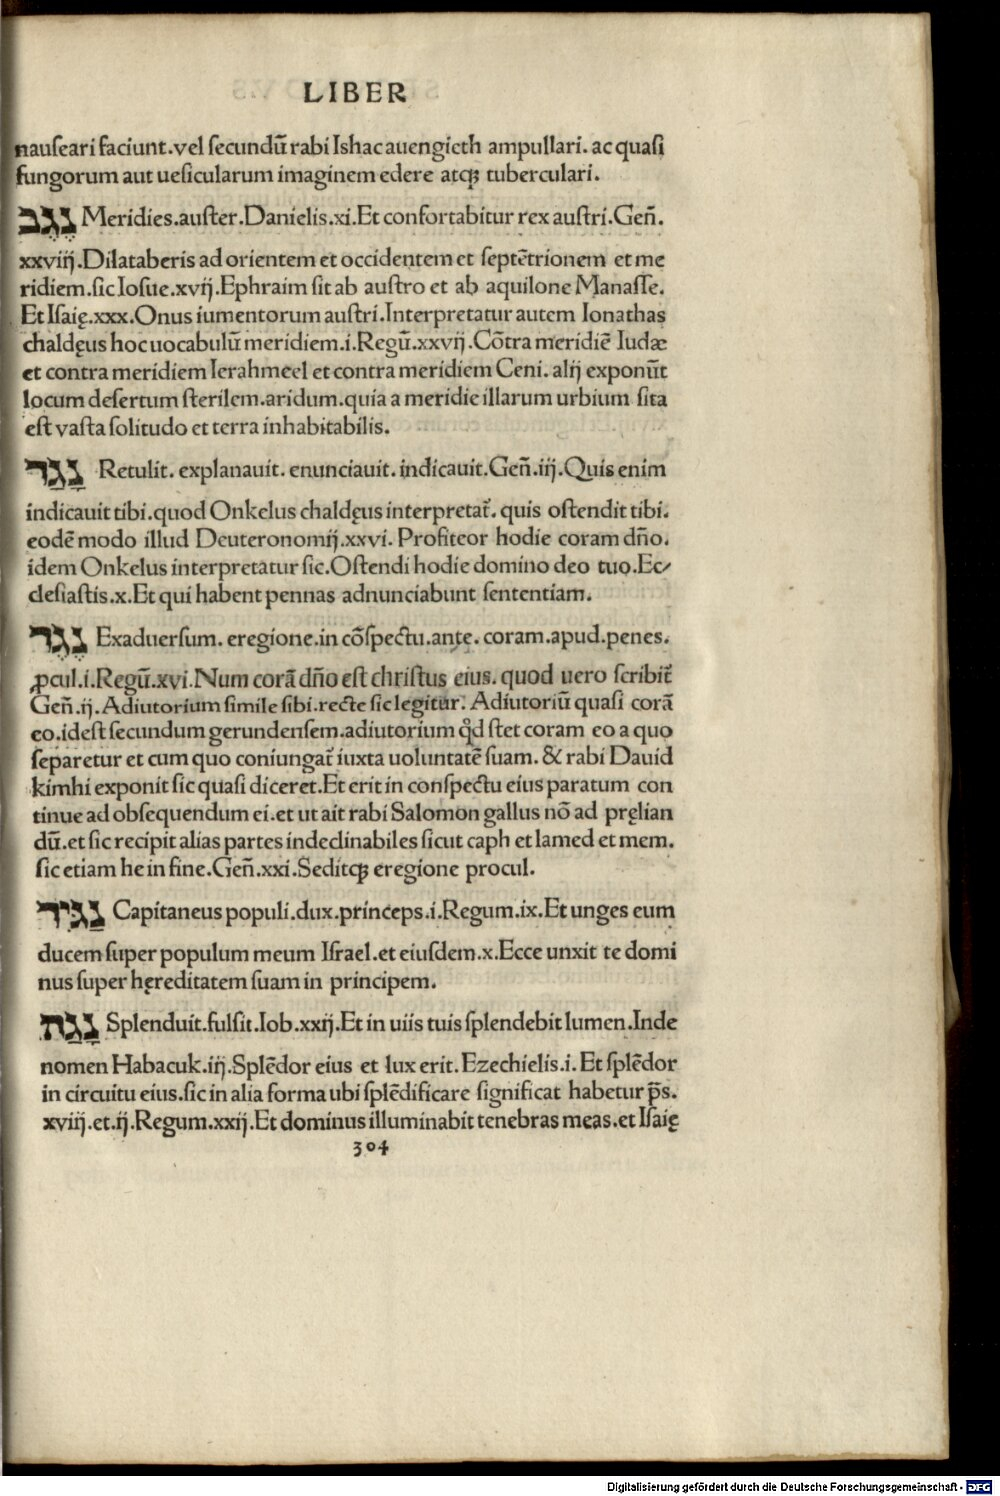 LIBER
nauſeari faciunt.vel ſecundū rabi Iſhac auengieth ampullari. ac quaſi
fungorum aut ueſicularum imaginem edere atqꝫ tuberculari.
נֶגֶב Meridies.auſter.Danielis.xi.Et confortabitur rex auſtri.Geñ.
xxviij.Dilataberis ad orientem et occidentem et ſeptētrionem et me
ridiem.ſic Ioſue.xvij.Ephraim ſit ab auſtro et ab aquilone Manaſſe.
Et Iſaię.xxx.Onus iumentorum auſtri.Interpretatur autem Ionathas
chaldęus hoc uocabulū meridiem.i.Regū.xxvij.Cōtra meridiē Iudæ
et contra meridiem Ierahmeel et contra meridiem Ceni. alij exponūt
locum deſertum ſterilem.aridum.quia a meridie illarum urbium ſita
eſt vaſta ſolitudo et terra inhabitabilis.
נָגַד Retulit. explanauit. enunciauit. indicauit.Geñ.iij.Quis enim
indicauit tibi.quod Onkelus chaldęus interpretat᷑. quis oſtendit tibi.
eodē modo illud Deuteronomij.xxvi. Profiteor hodie coram dño.
idem Onkelus interpretatur ſic.Oſtendi hodie domino deo tuo.Ec⸗
cleſiaſtis.x.Et qui habent pennas adnunciabunt ſententiam.
נֶגֶד Exaduerſum. eregione.in cōſpectu.ante. coram.apud.penes.
ꝓcul.i.Regū.xvi.Num corā dño eſt chriſtus eius. quod uero ſcribit᷑
Geñ.ij.Adiutorium ſimile ſibi.recte ſic legitur. Adiutoriū quaſi corā
eo.ideſt ſecundum gerundenſem.adiutorium qđ ſtet coram eo a quo
ſeparetur et cum quo coniungat᷑ iuxta uoluntatē ſuam. & rabi Dauid
kimhi exponit ſic quaſi diceret.Et erit in conſpectu eius paratum con
tinue ad obſequendum ei.et ut ait rabi Salomon gallus nō ad pręlian
dū.et ſic recipit alias partes indeclinabiles ſicut caph et lamed et mem.
ſic etiam he in fine.Geñ.xxi.Seditqꝫ eregione procul.
נָגִיד Capitaneus populi.dux.princeps.i.Regum.ix.Et unges eum
ducem ſuper populum meum Iſrael.et eiuſdem.x.Ecce unxit te domi
nus ſuper hęreditatem ſuam in principem.
נָגַה Splenduit.fulſit.Iob.xxij.Et in uiis tuis ſplendebit lumen.Inde
nomen Habacuk.iij.Splēdor eius et lux erit. Ezechielis.i. Et ſplēdor
in circuitu eius.ſic in alia forma ubi ſplēdificare ſignificat habetur p̄s.
xviij.et.ij.Regum.xxij.Et dominus illuminabit tenebras meas.et Iſaię
304
Digitalisierung gefördert durch die Deutsche Forschungsgemeinschaft - DFG